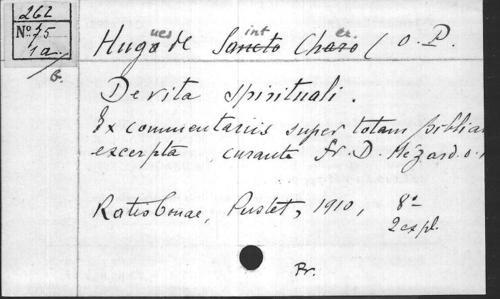 262
No. 75
1a.
B.
Hugo ues de Sancto int Charo er. ( O. P.
De vita spirituali.
Ex commentariis super totam bibliam
excerpta curante fr. D. Mézard. o.
Ratisbonae, Pustet, 1910, 8º
2 expl.
Pr.